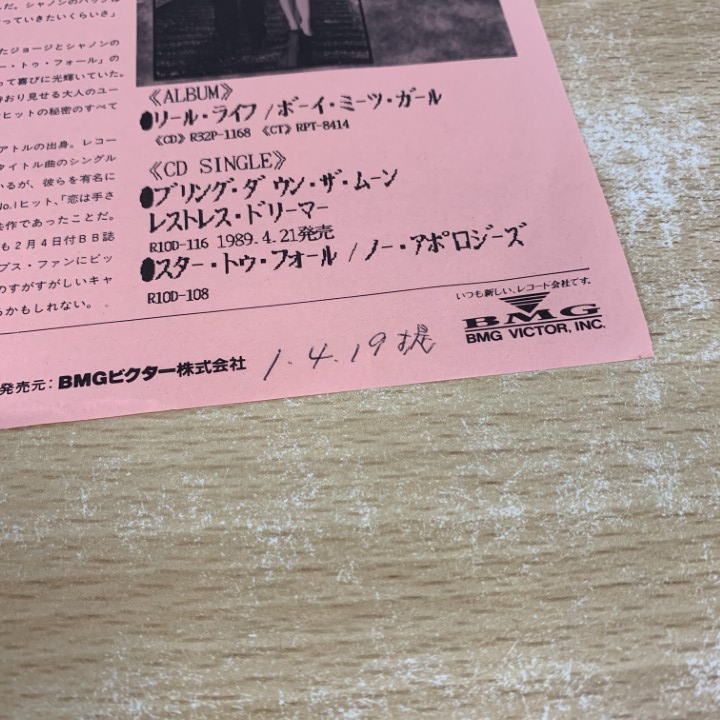 だ。シャノンのバック
っていきたいくらいさ」
たジョージとシャノンの
ー・トゥ・フォール」の
って喜びに光輝いていた。
おり見せる大人のユー
ヒットの秘密のすべて
アトルの出身。レコー
タイトル曲のシングル
いるが、彼らを有名に
No.1ヒット、「恋は手さ
作であったことだ。
も2月4日付BB誌
プス・ファンにピッ
のすがすがしいキャ
るかもしれない。
《ALBUM》
●リール・ライフ/ボーイ・ミーツ・ガール
《CD》R32P-1168 《CT》RPT-8414
《CD SINGLE》
●ブリング・ダウン・ザ・ムーン
レストレス・ドリーマー
R10D-116 1989.4.21発売
●スター・トゥ・フォール/ノー・アポロジーズ
R10D-108
いつも新しい、レコード会社です。
BMG
BMG VICTOR, INC.
発売元:BMGビクター株式会社
1.4.19